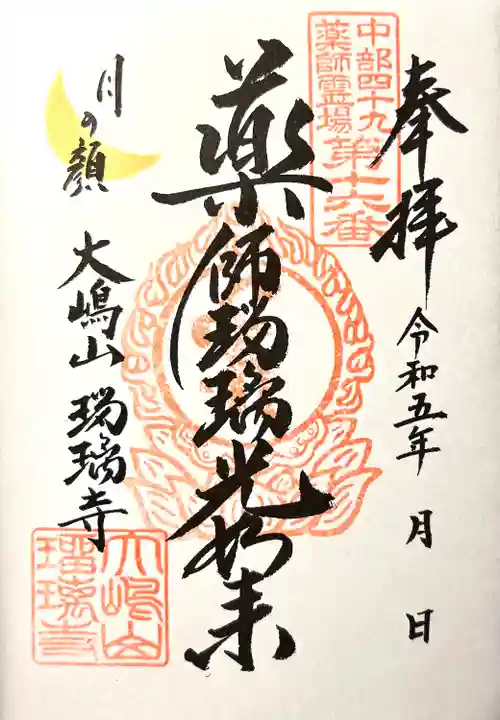 奉拝
令和五年 月 日
中部四十九
薬師霊場第十六番
薬師瑠璃光如来
月の顔
大嶋山 瑠璃寺
大嶋山
瑠璃寺